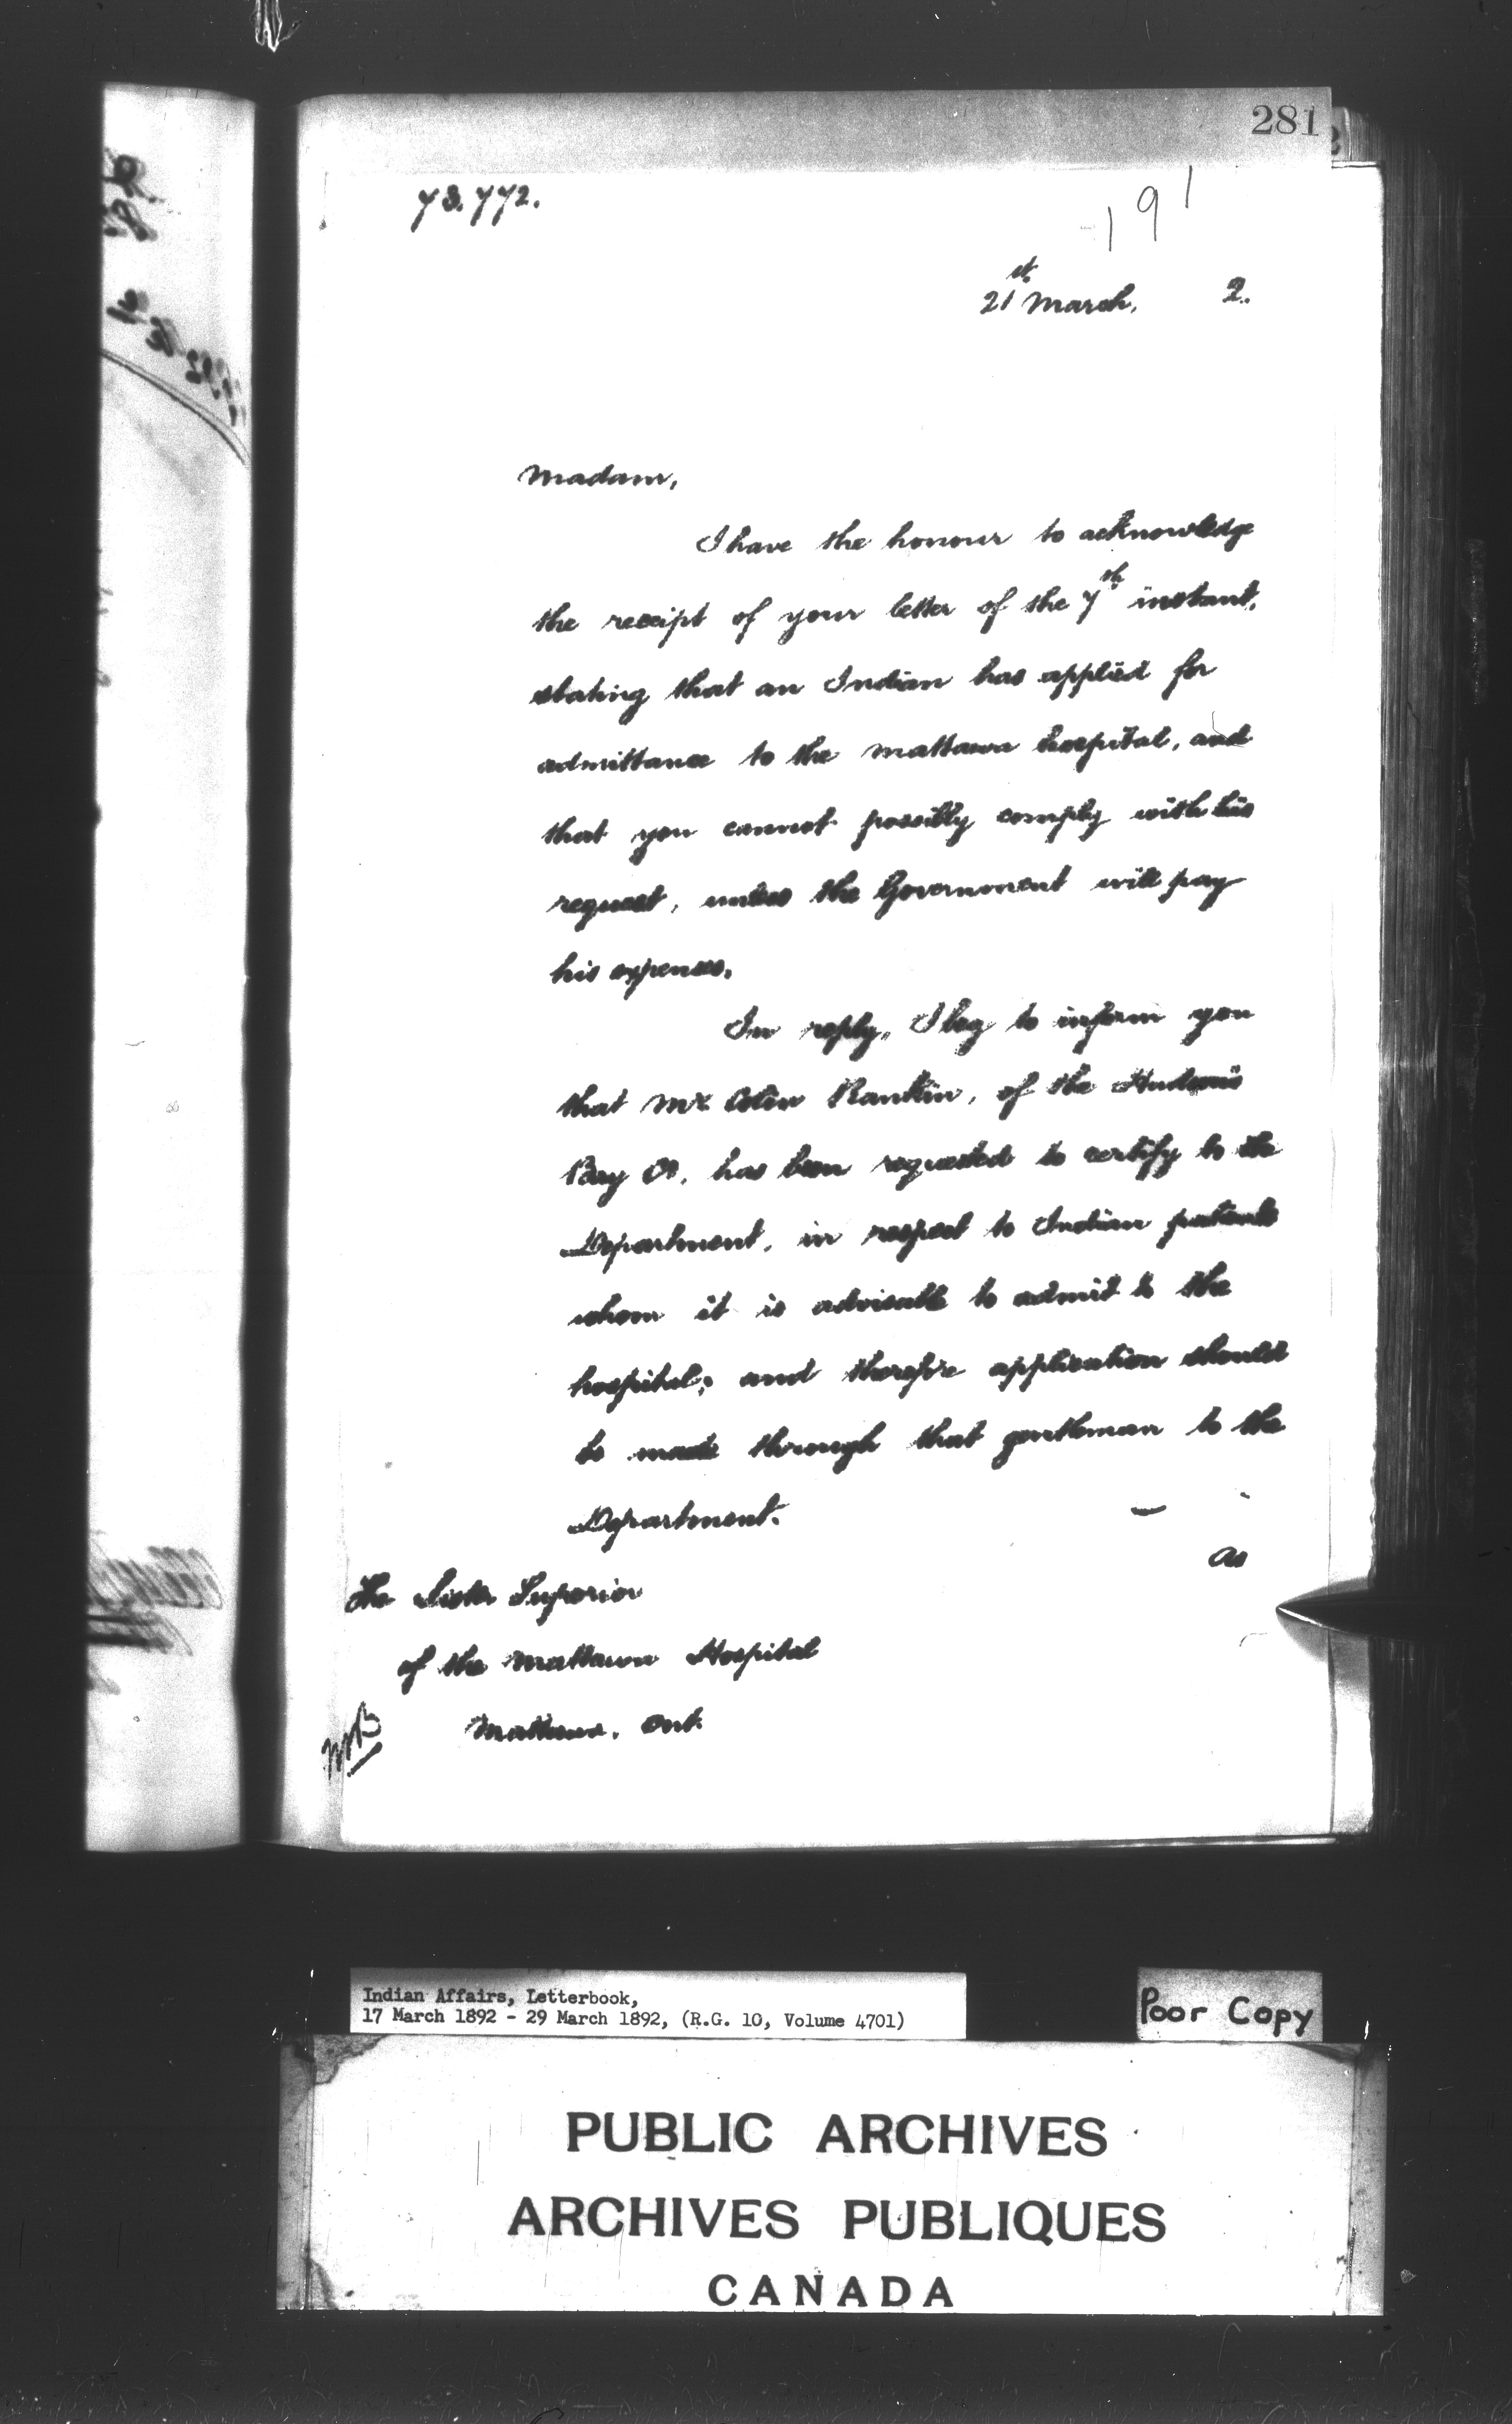 281
73.772.
191
21st March, 2.
Madam,
I have the honour to acknowledge
the receipt of your letter of the 7th instant,
stating that an Indian has applied for
admittance to the Mattawa hospital, and
that you cannot possibly comply with his
request, unless the Government will pay
his expenses.
In reply, I beg to inform you
that Mr. Colin Rankin, of the Hudson's
Bay Co. has been requested to certify to the
Department, in respect to Indian patients
whom it is advisable to admit to the
hospital; and therefore application should
be made through that gentleman to the
Department.
as
The Sister Superior
of the Mattawa Hospital
Mattawa, Ont.
Indian Affairs, Letterbook,
17 March 1892 - 29 March 1892, (R.G. 10, Volume 4701)
Poor Copy
PUBLIC ARCHIVES
ARCHIVES PUBLIQUES
CANADA